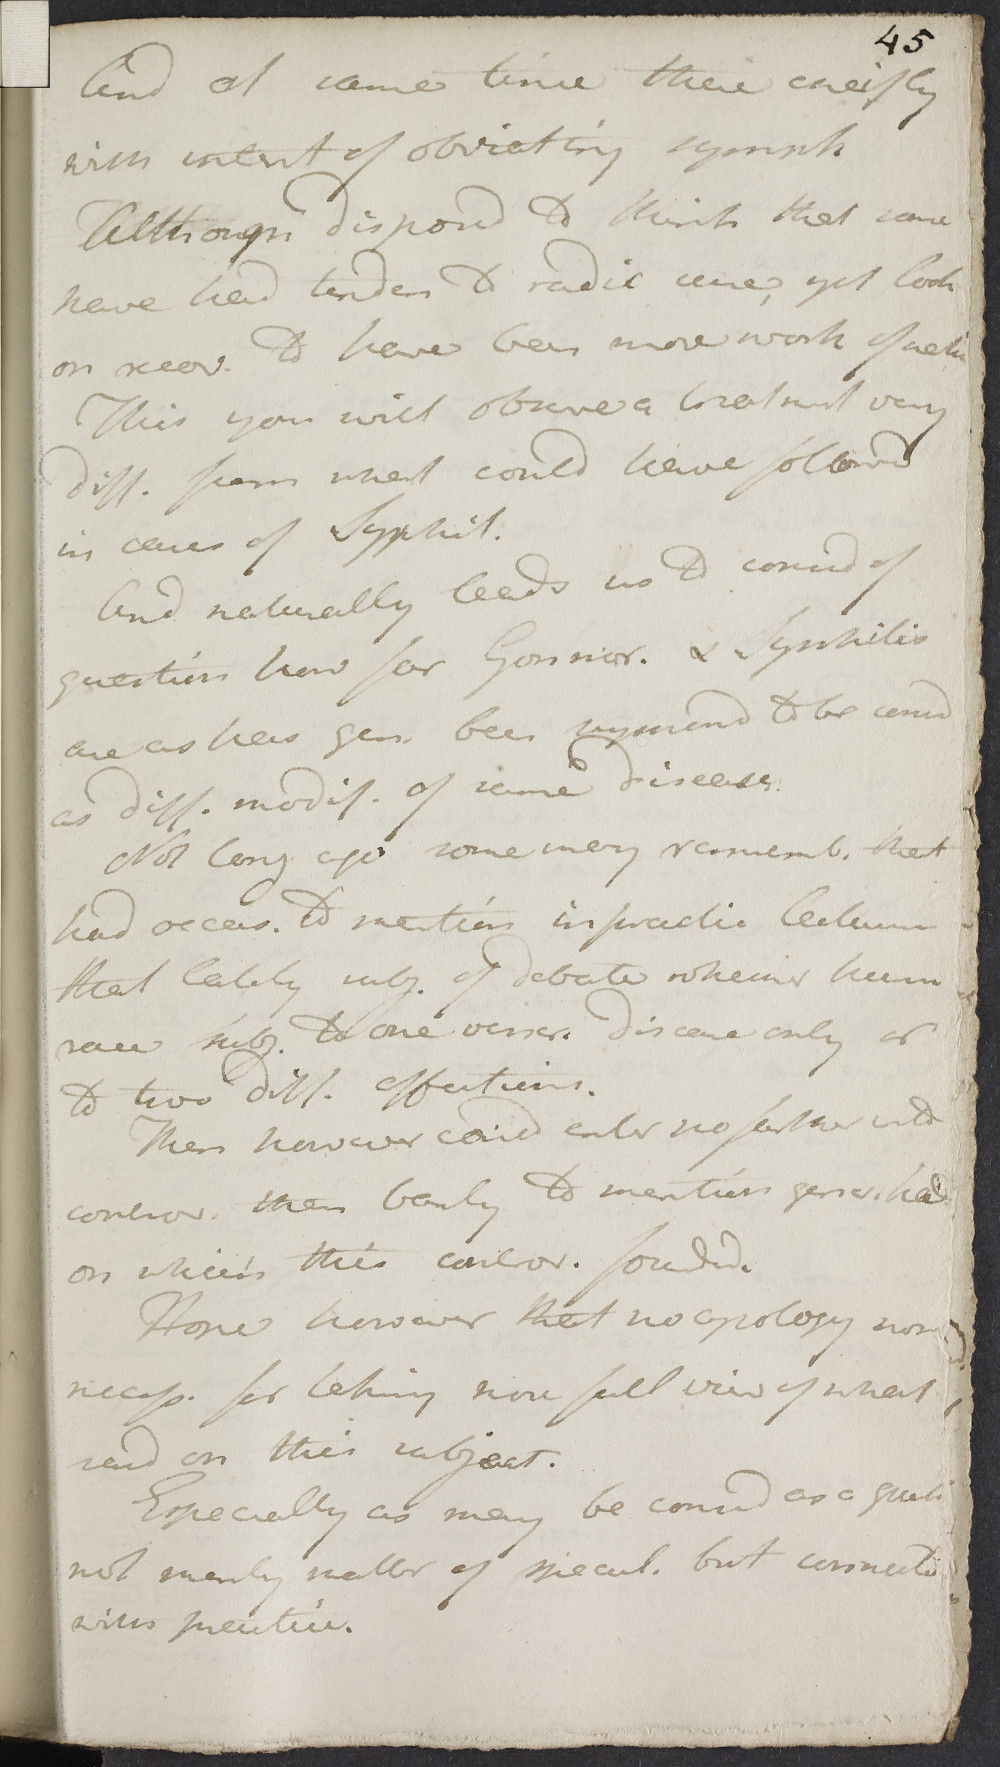 45
And at same time these chiefly
with intent of obviating symptk
Although disposed to think that some
have had tenden to radic cure, yet look
on recov. to have been more work of natu
This you will observe a treatment very
diff. from what could have followd
in cases of Syphil.
And naturally leads us to consid of
question how far Gonnor. & Syphilis
are as has gen. been supposed to be consid
as diff. modif. of same disease.
Not long ago some may rememb. that
had occas. to mention in practic lectures
that lately subj. of debate whether hum
race subj. to one vener. disease only or
to two diff. affections.
Then however could enter no farther into
controv. than barely to mention gener. head
on which this controv. founded.
Hope however that no apology now
necess. for taking more full view of what
said on this subject.
Especially as may be consid as a questi
not merely matter of specul. but connected
with practice.